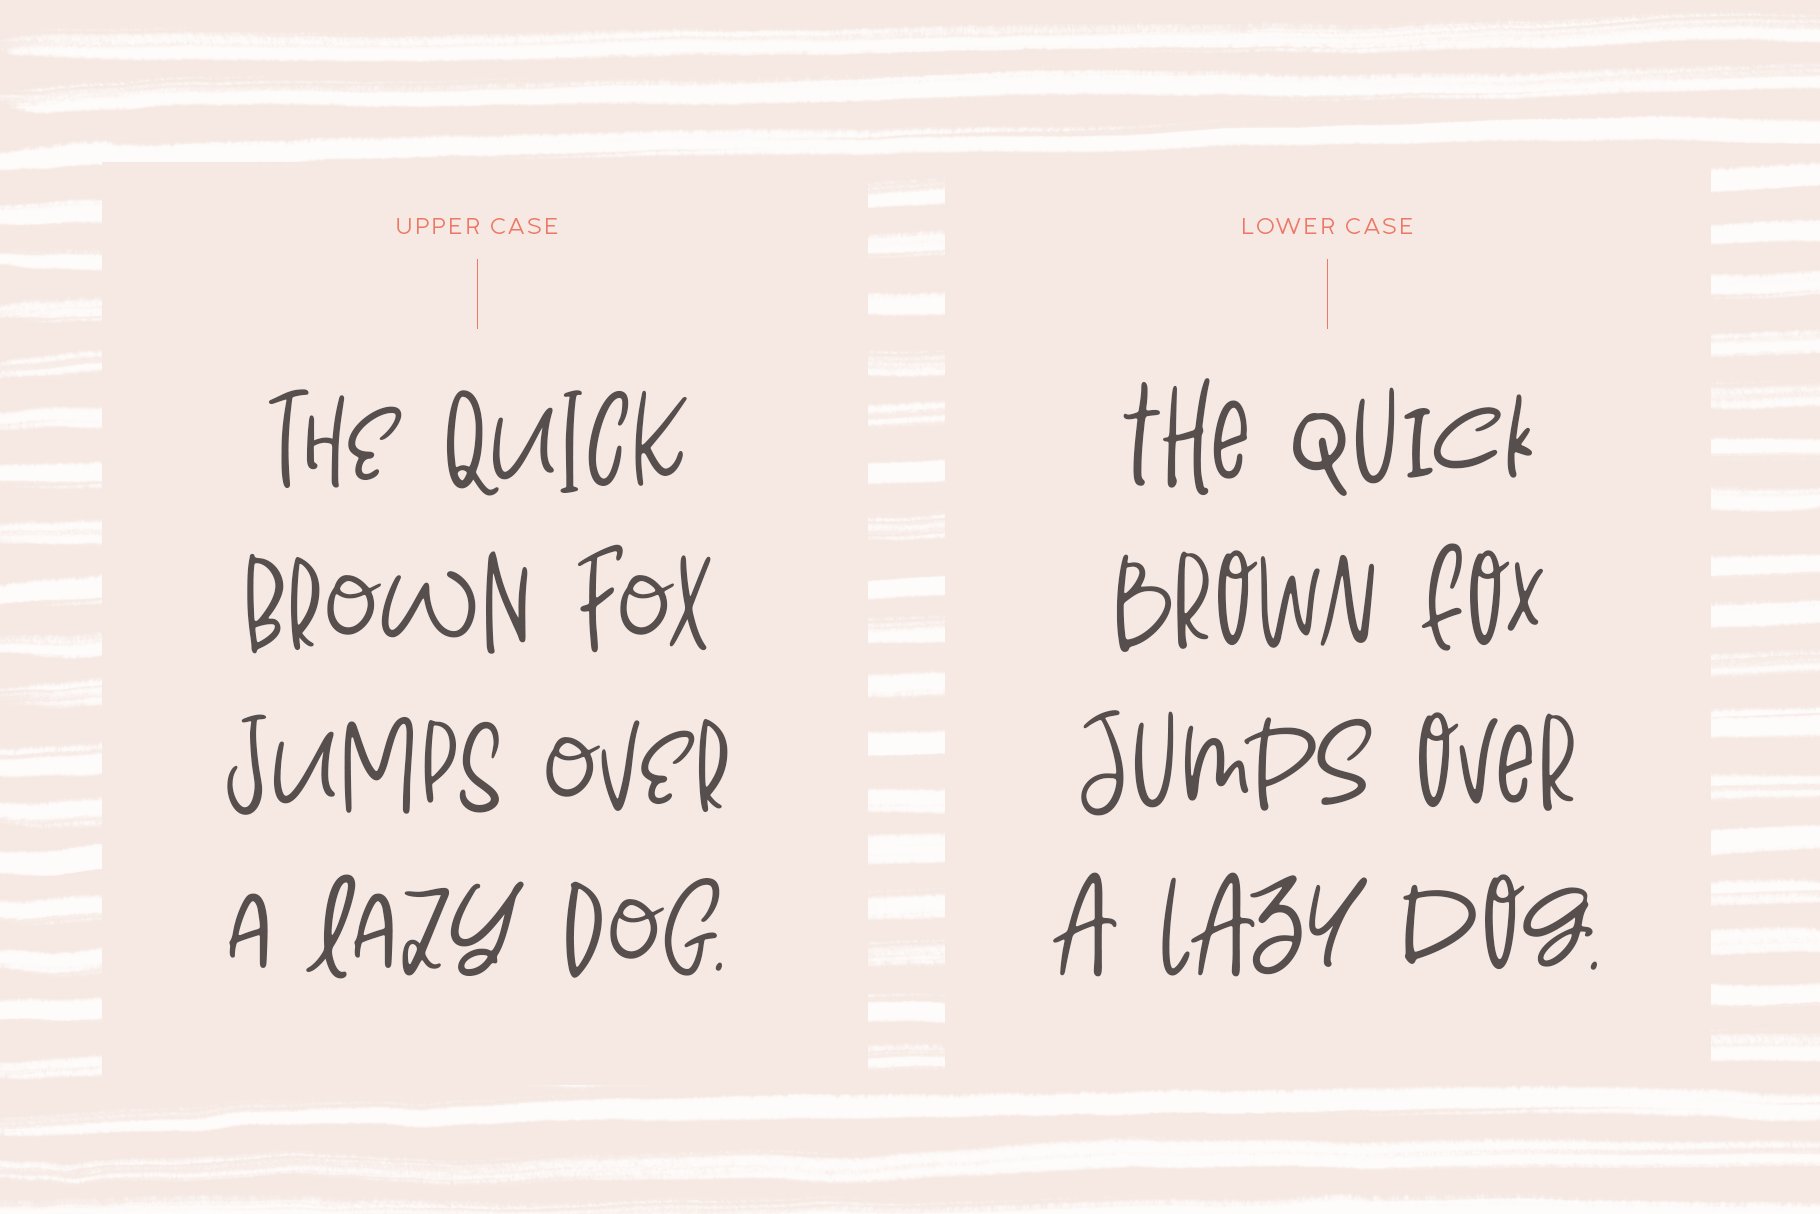 UPPER CASE
THE QUICK
BROWN FOX
JUMPS OVER
A lAZY DOG.
LOWER CASE
tHe QUICk
BROWN fOx
JUmPS OVeR
A LAZY DOg.